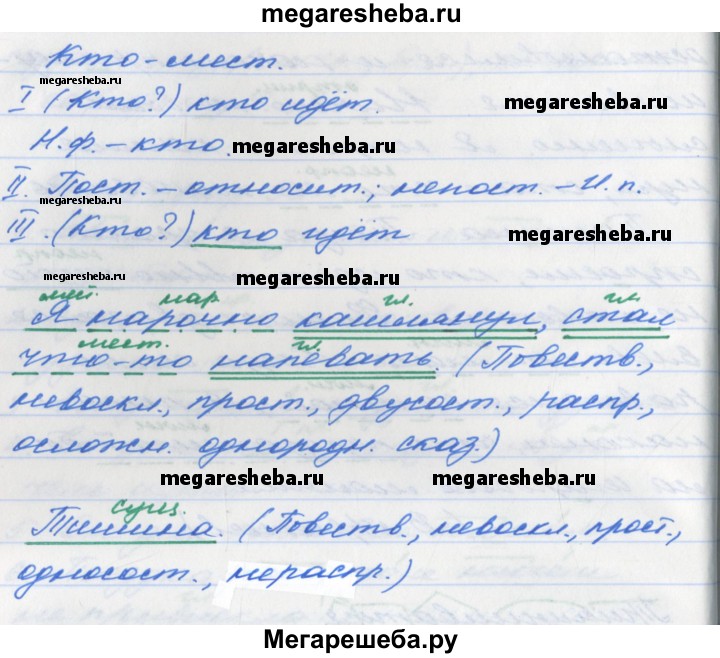 megaresheba.ru
Кто - мест.
megaresheba.ru
I (Кто?) кто идёт. megaresheba.ru
Н.ф. - кто. megaresheba.ru
II. Пост. - относит.; непост. - И.п.
III. (Кто?) кто идёт megaresheba.ru
megaresheba.ru megaresheba.ru
мест. нар. гл. гл.
Я нарочно кашлянул, стал
мест. гл.
что-то напевать. (Повеств.,
невоскл., прост., двусост., распр.,
осложн. однородн. сказ.)
megaresheba.ru megaresheba.ru
сущ.
Тишина. (Повеств., невоскл., прост.,
односост., нераспр.)
Мегарешеба.ру